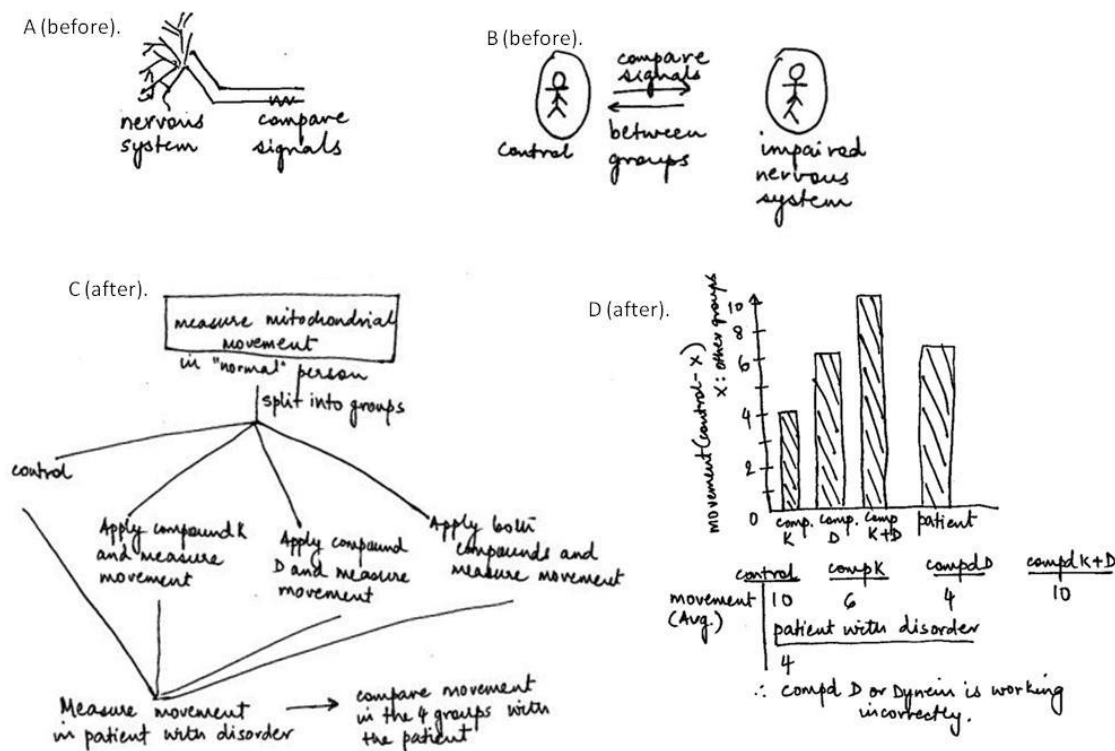 A (before).
nervous
system
compare
signals
B (before).
compare
signals
control
between
groups
impaired
nervous
system
C (after).
measure mitochondrial
movement
in "normal" person
split into groups
control
Apply compound K
and measure
movement
Apply compound
D and measure
movement
Apply both
compounds and
measure movement
Measure movement
in patient with disorder
compare movement
in the 4 groups with
the patient
D (after).
movement (control - x)
x: other groups
10
8
6
4
2
0
comp.
K
comp.
D
comp
K+D
patient
control compK compdD compdK+D
movement
(Avg.)
10 6 4 10
patient with disorder
4
∴ compd D or Dynein is working
incorrectly.